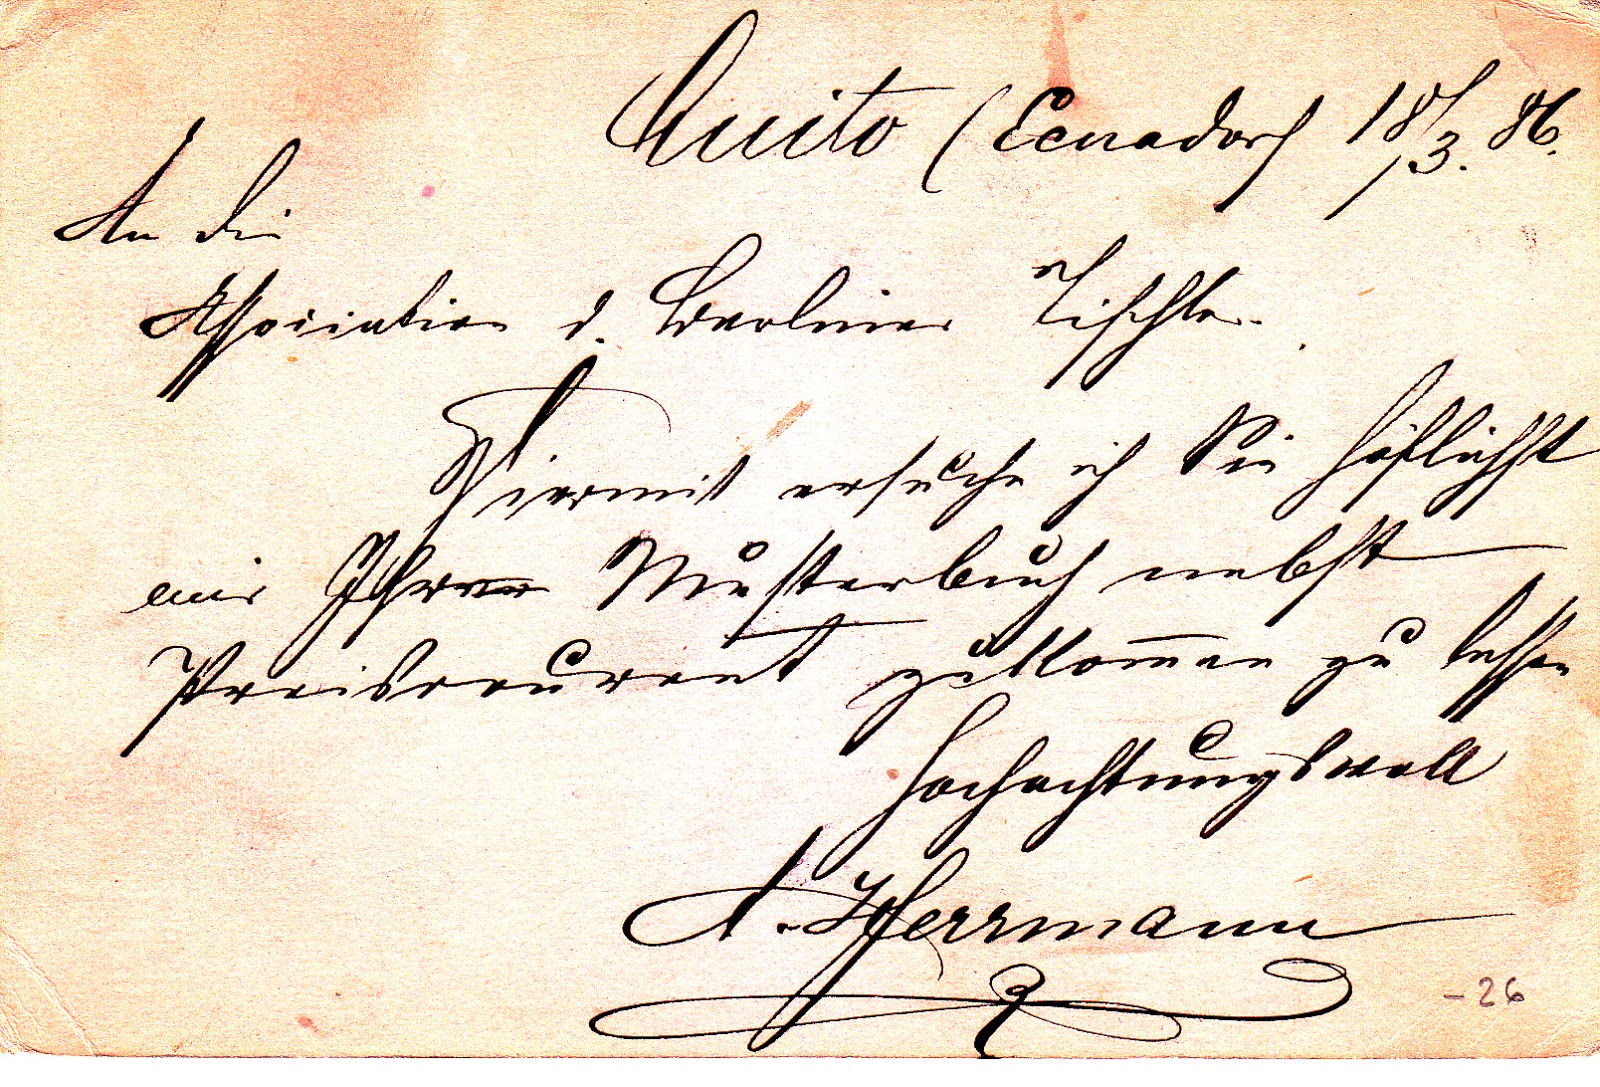 Quito (Ecuador) 18/3. 86.
An die
Association d. Berliner Tischler.
Hiermit ersuche ich Sie höflichst
mir Ihr Musterbuch nebst
Preiscourant zukom̅en zu lassen
Hochachtungsvoll
A. Herrmann
- 26